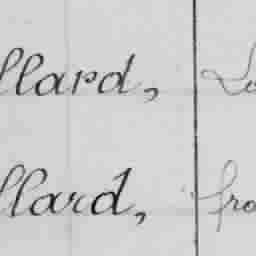 llard, Lo
llard, fro